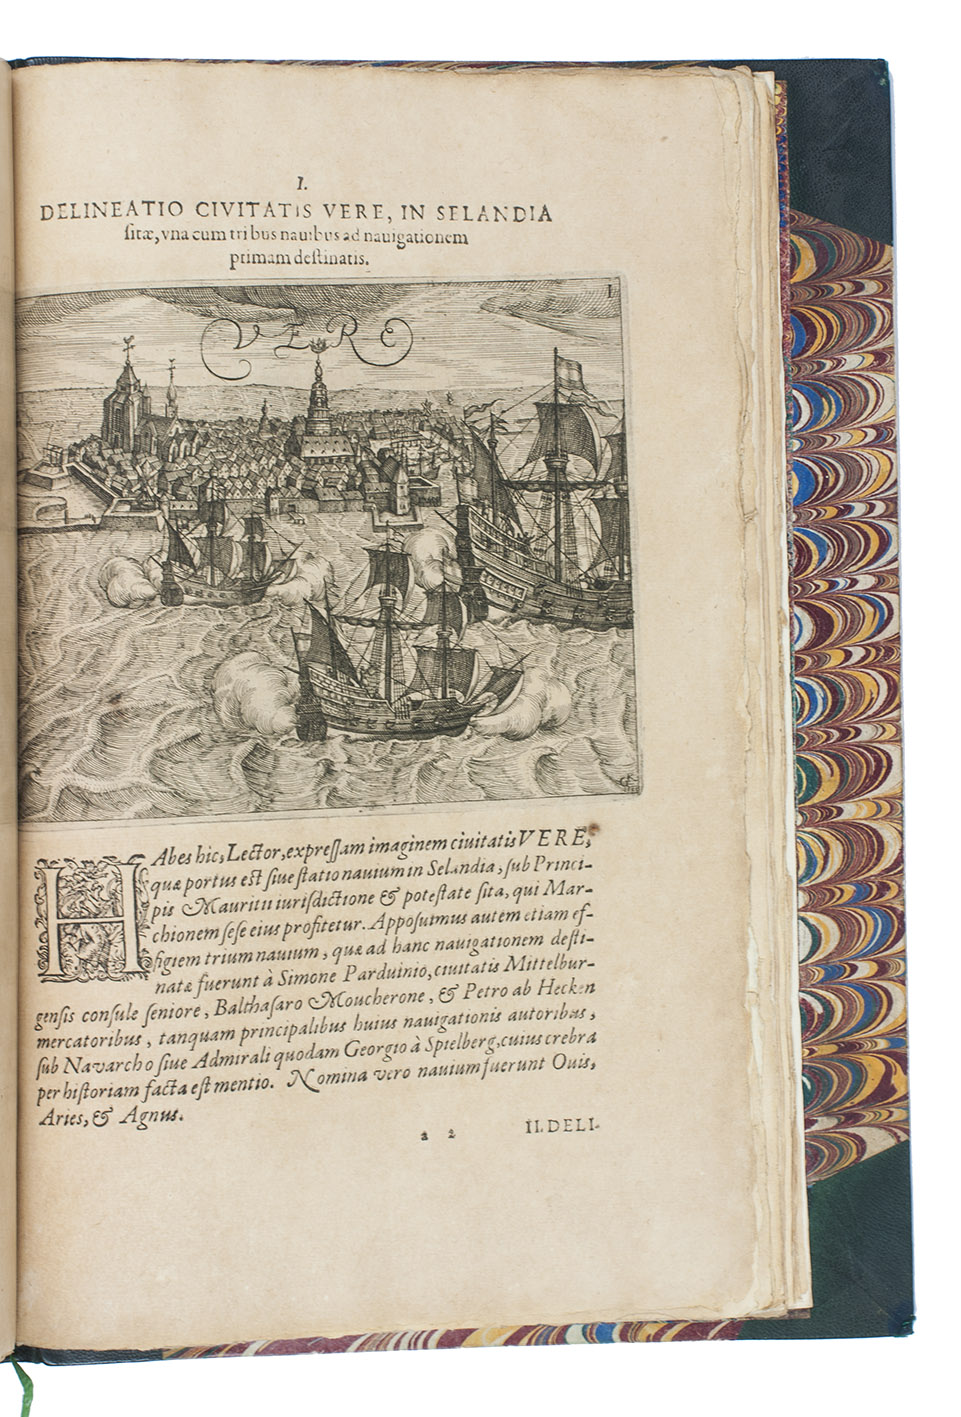 I.
DELINEATIO CIVITATIS VERE, IN SELANDIA
sitæ, vna cum tribus nauibus ad nauigationem
primam destinatis.
I
VERE
HAbes hic, Lector, expressam imaginem ciuitatis VERE,
quæ portus est siue statio nauium in Selandia, sub Princi-
pis Mauritii iurisdictione & potestate sita, qui Mar-
chionem sese eius profitetur. Apposuimus autem etiam ef-
figiem trium nauium, quæ ad hanc nauigationem desti-
natæ fuerunt à Simone Parduinio, ciuitatis Mittelbur-
gensis consule seniore, Balthasaro Moucherone, & Petro ab Hecken
mercatoribus, tanquam principalibus huius nauigationis autoribus,
sub Navarcho siue Admirali quodam Georgio à Spielberg, cuius crebra
per historiam facta est mentio. Nomina vero nauium fuerunt Ouis,
Aries, & Agnus.
a 2 II. DELI-